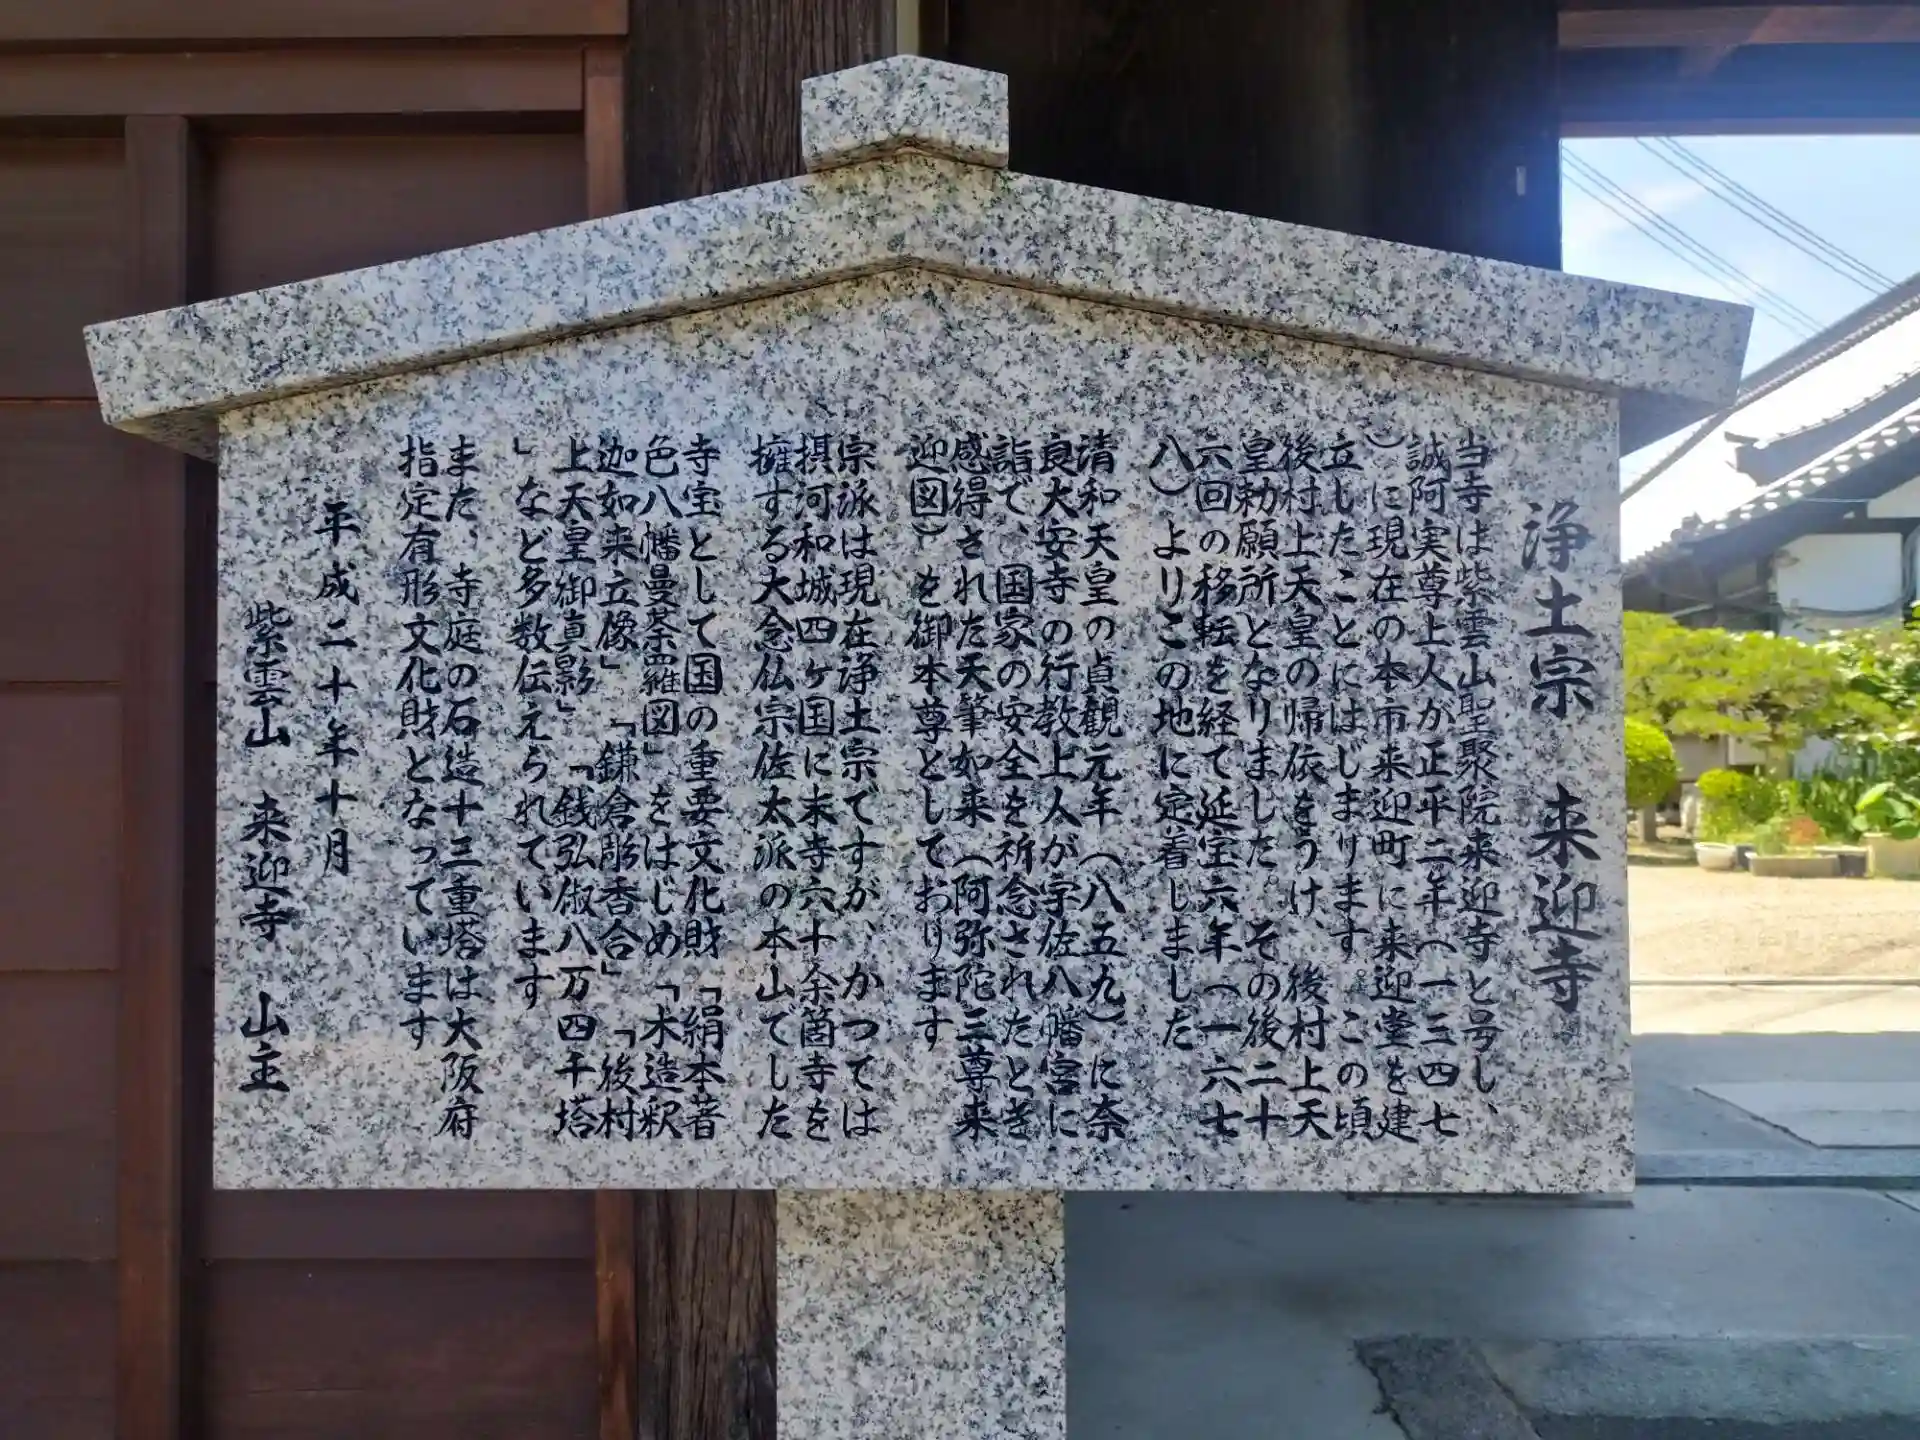 浄土宗　来迎寺
当寺は紫雲山聖聚院来迎寺と号し、
誠阿実尊上人が正平二年（一三四七
）に現在の本市来迎町に来迎堂を建
立したことにはじまります。この頃
後村上天皇の帰依をうけ、後村上天
皇勅願所となりました。その後二十
六回の移転を経て延宝六年（一六七
八）よりこの地に定着しました
清和天皇の貞観元年（八五九）に奈
良大安寺の行教上人が宇佐八幡宮に
詣で、国家の安全を祈念されたとき
感得された天筆如来（阿弥陀三尊来
迎図）を御本尊としております
宗派は現在浄土宗ですが、かつては
摂河和城四ヶ国に末寺六十余箇寺を
擁する大念仏宗佐太派の本山でした
寺宝として国の重要文化財「絹本著
色八幡曼荼羅図」をはじめ「木造釈
迦如来立像」「鎌倉彫香合」「後村
上天皇御真影」「銭弘俶八万四千塔
」など多数伝えられています
また、寺庭の石造十三重塔は大阪府
指定有形文化財となっています
平成二十年十月
紫雲山　来迎寺　山主